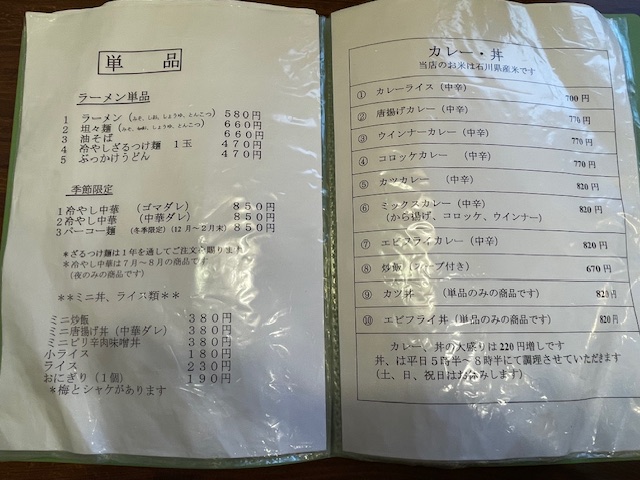 単 品
ラーメン単品
1 ラーメン（みそ、しお、しょうゆ、とんこつ） 580円
2 坦々麺（みそ、しお、しょうゆ、とんこつ） 660円
3 油そば 660円
4 冷やしざるつけ麺 １玉 470円
5 ぶっかけうどん 470円
季節限定
1冷やし中華 （ゴマダレ） 850円
2冷やし中華 （中華ダレ） 850円
3パーコー麺 （冬季限定）（12月～2月末） 850円
＊ざるつけ麺は１年を通してご注文を賜ります
＊冷やし中華は７月～８月の商品です
（夜のみの商品です）
＊＊ミニ丼、ライス類＊＊
ミニ炒飯 380円
ミニ唐揚げ丼（中華ダレ） 380円
ミニピリ辛肉味噌丼 380円
小ライス 180円
ライス 230円
おにぎり（１個） 190円
＊梅とシャケがあります
カレー・丼
当店のお米は石川県産米です
① カレーライス（中辛） 700円
② 唐揚げカレー（中辛） 770円
③ ウインナーカレー（中辛） 770円
④ コロッケカレー （中辛） 770円
⑤ カツカレー （中辛） 820円
⑥ ミックスカレー（中辛） 820円
（から揚げ、コロッケ、ウインナー）
⑦ エビフライカレー（中辛） 820円
⑧ 炒飯（スープ付き） 670円
⑨ カツ丼 （単品のみの商品です） 820円
⑩ エビフライ丼（単品のみの商品です） 820円
カレー、丼の大盛りは220円増しです
丼、は平日５時半～８時半にて調理させていただきます
（土、日、祝日はお休みします）